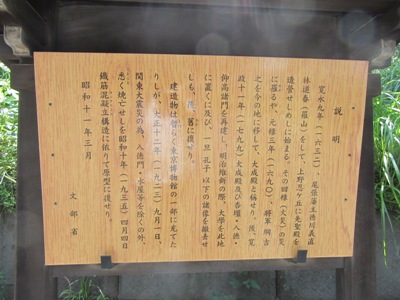 説明
寛永九年(一六三二)、尾張藩主徳川義直
林道春(羅山)をして、上野忍ケ丘に先聖殿を
造營せしめしに始まる。その
に罹るや、元禄三年(一六九〇)、將軍綱吉
之を今の地に移して、大成殿と稱せり。後、寛
政十一年(一七九九)大成殿及び杏壇・入徳・
仰高諸門を再建し、明治維新の際、大學を此地
に置くに及び、一旦孔子以下の諸像を撤去せ
しも、後、舊に復せり。
建造物は 東京博物館の一部に充てた
りしが、大正十二年(一九二三)九月一日、
関東大震災の為、入徳門・水屋等を除くの外、
悉く焼亡せしを昭和十年(一九三五)四月四日
鐵筋混凝立構造に依りて原型に復せり。
昭和十一年三月
文部省